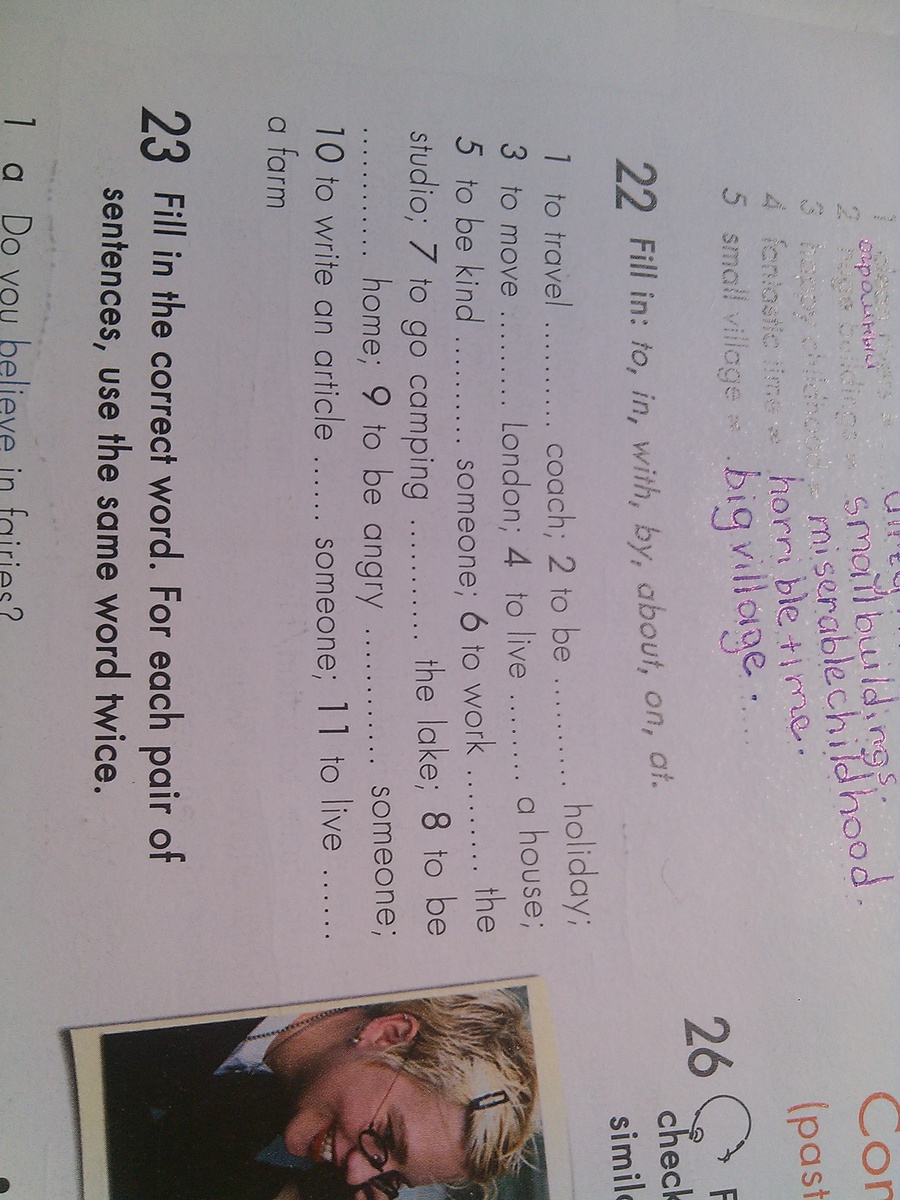 2
smallbuildings.
3 happy childhood = miserablechildhood.
4 fantastic time = horrible time.
5 small village = big village.
22 Fill in: to, in, with, by, about, on, at.
1 to travel .......... coach; 2 to be .......... holiday;
3 to move .......... London; 4 to live ......... a house;
5 to be kind .......... someone; 6 to work ......... the
studio; 7 to go camping ............ the lake; 8 to be
............ home; 9 to be angry ............ someone;
10 to write an article ...... someone; 11 to live ......
a farm
23 Fill in the correct word. For each pair of
sentences, use the same word twice.
1 a Do you believe in fairies?
26
check
Con
(past